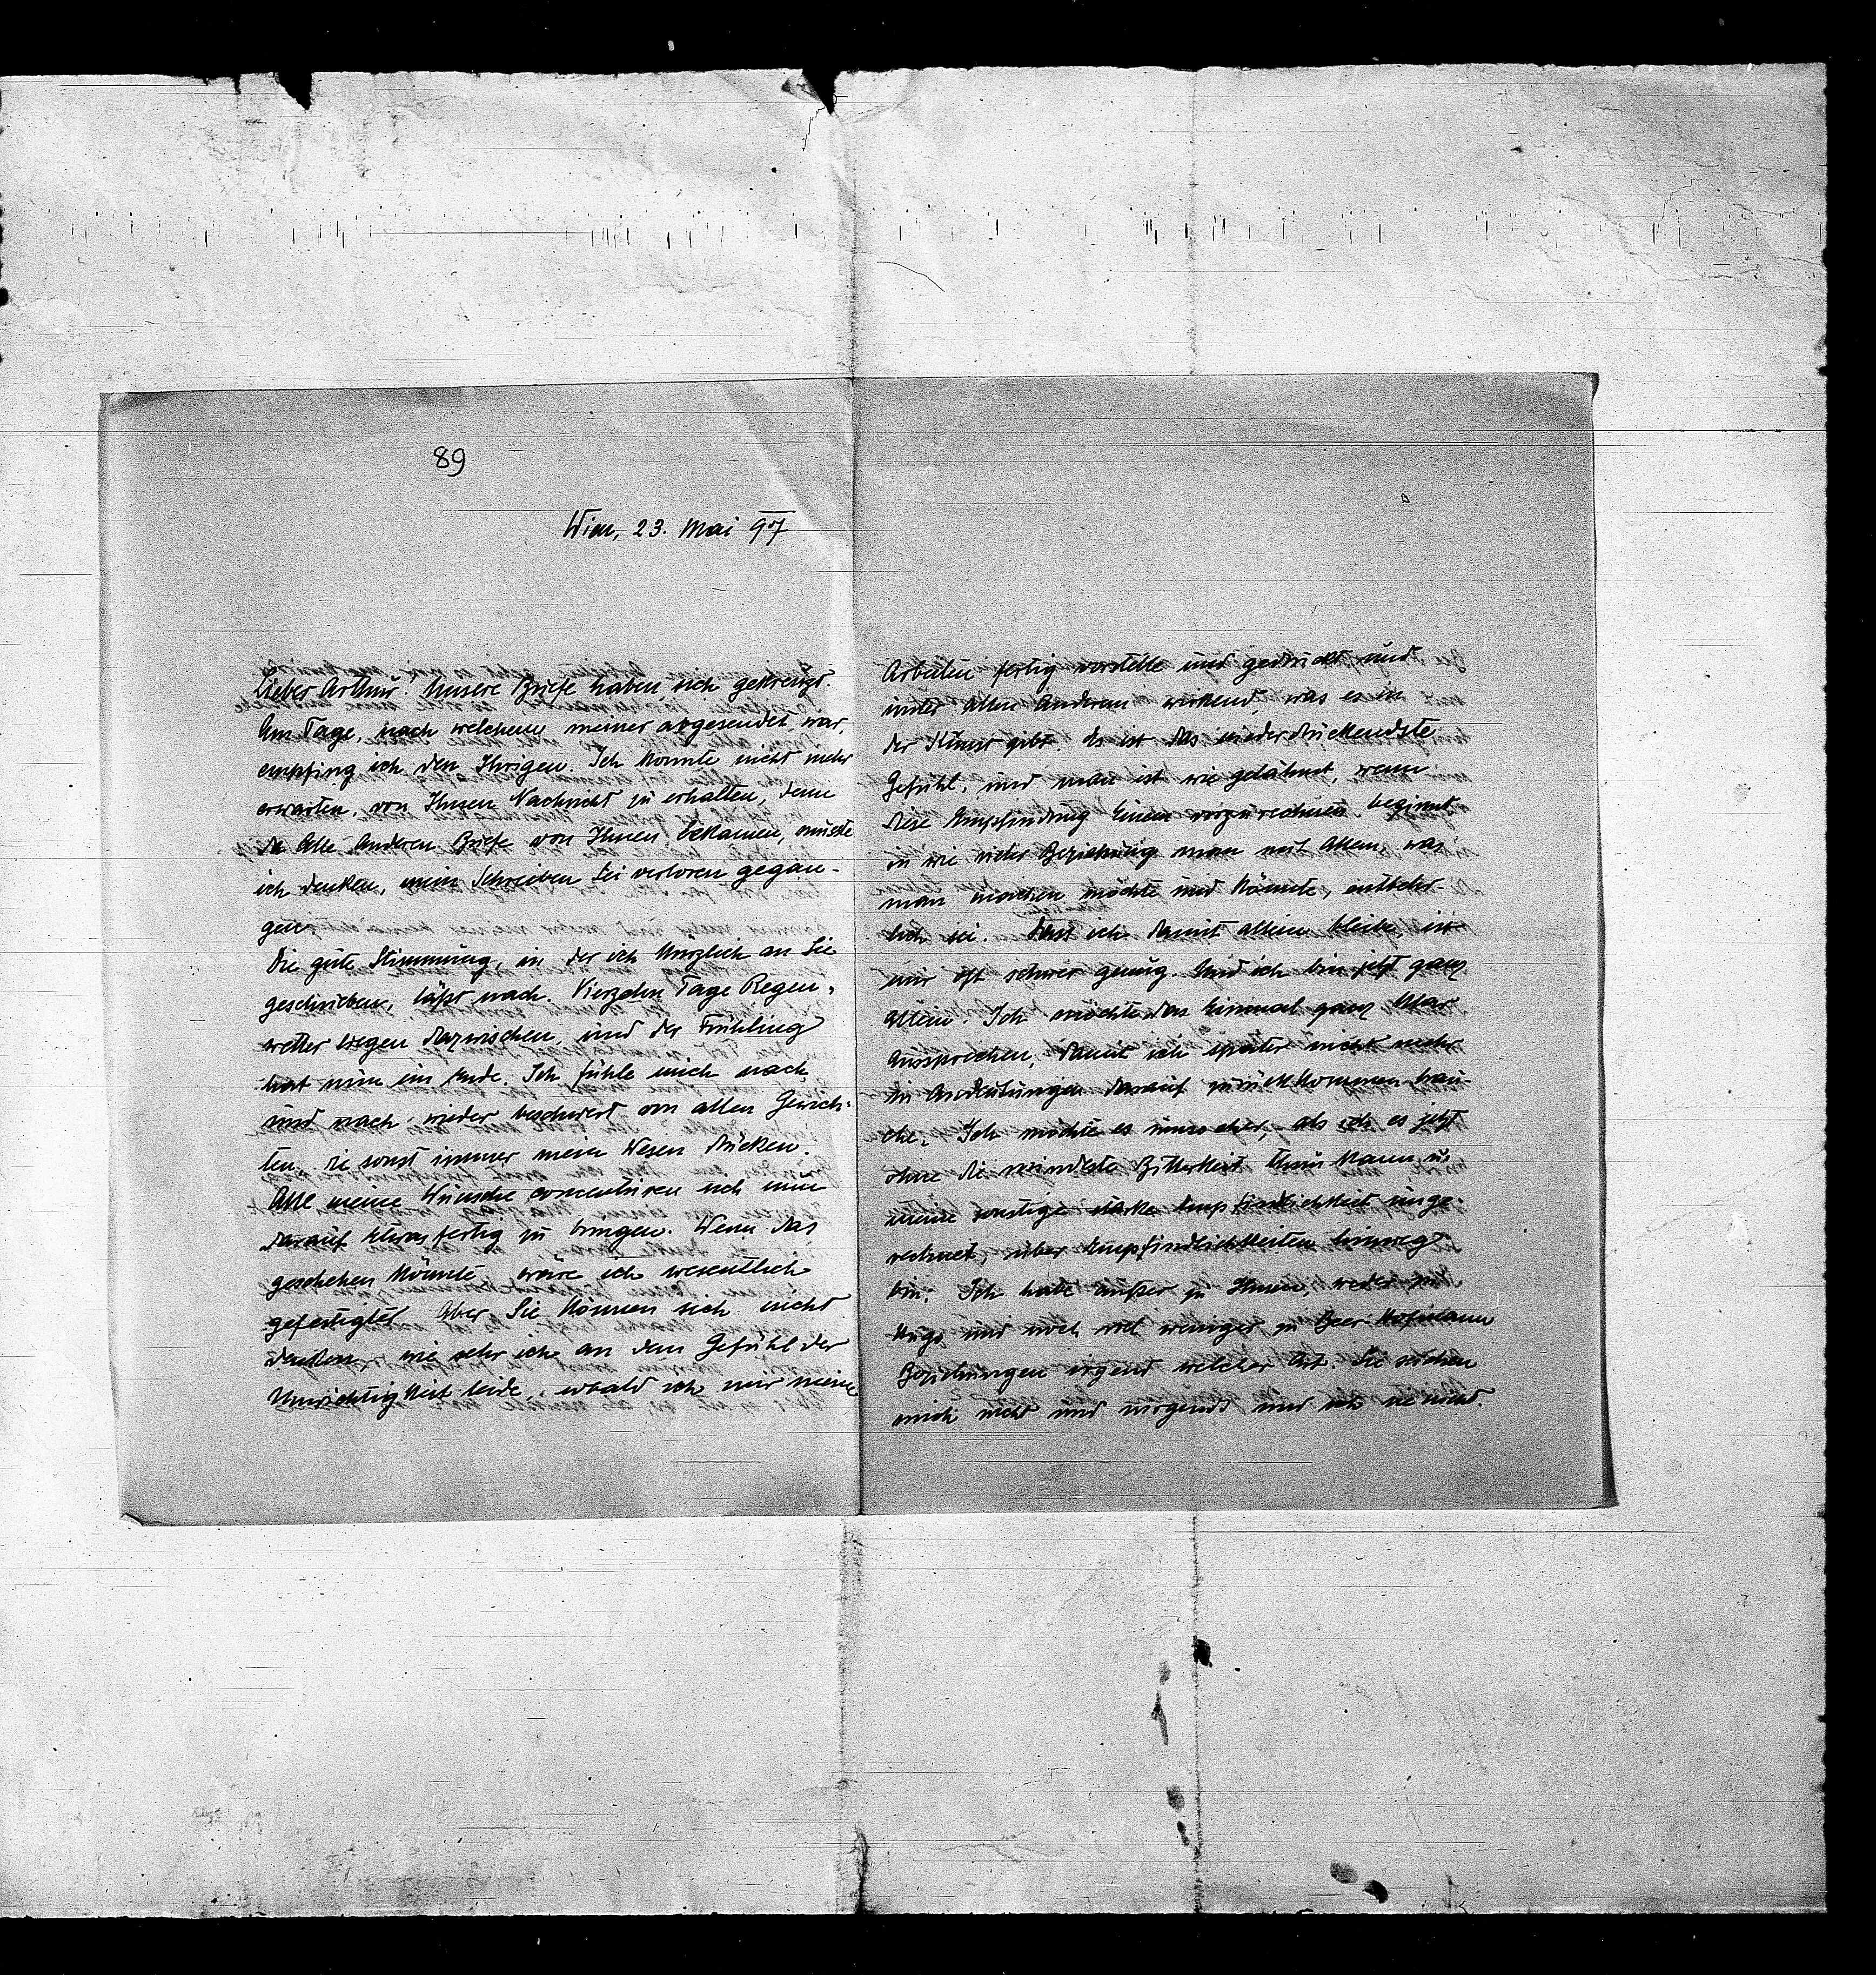 89
Wien, 23. Mai 97
Lieber Arthur! Unsere Briefe haben sich gekreuzt.
Am Tage, nach welchem meiner abgesendet war,
empfing ich den Ihrigen. Ich konnte nicht mehr
erwarten, von Ihnen Nachricht zu erhalten, denn
da Alle Anderen Briefe von Ihnen bekamen, musste
ich denken, mein Schreiben sei verloren gegan-
gen.
Die gute Stimmung, in der ich kürzlich an Sie
geschrieben, läßt nach. Vierzehn Tage Regen-
wetter liegen dazwischen, und der Frühling
hat nun ein Ende. Ich fühle mich nach
und nach wieder beschwert von allen Gewich-
ten, die sonst immer mein Wesen drücken.
Alle meine Wünsche concentriren sich nur
darauf Etwas fertig zu bringen. Wenn das
geschehen könnte wäre ich wesentlich
gefestigter. Aber Sie können sich nicht
denken, wie sehr ich an dem Gefühl der
Unwichtigkeit leide, sobald ich mir meine
Arbeiten fertig vorstelle und gedruckt und
unter allen Anderem wirkend, was es in
der Kunst gibt. Es ist das niederdrückendste
Gefühl, und man ist wie gelähmt, wenn
diese Empfindung Einem vorzurechnen beginnt
in wie vieler Beziehung man mit Allem, was
man machen möchte und könnte, entbehr-
lich sei. Dass ich damit allein bleibe, ist
mir oft schwer genug. Und ich bin jetzt ganz
allein. Ich möchte das Einmal ganz klar
aussprechen, damit ich später nicht mehr
in Andeutungen darauf zurückkommen brau-
che. Ich möchte es umso eher, als ich es jetzt
ohne die mindeste Bitterkeit thun kann,
meine sonstige starke Empfindlichkeit unge-
rechnet, über Empfindlichkeiten hinweg
bin. Ich habe außer zu Ihnen, weder zu
Hugo und noch viel weniger zu Beer-Hofmann
Beziehungen irgend welcher Art. Sie suchen
mich nicht und nirgends und ich sie nicht.